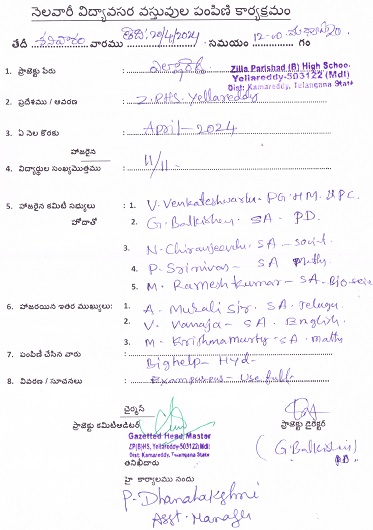 నెలవారీ విద్యావసర వస్తువుల పంపిణీ కార్యక్రమం
తేదీ శనివారం వారము తేది: 20/4/2024 సమయం 12-00 గం
1. ప్రాజెక్టు పేరు : ఎల్లారెడ్డి
Zilla Parishad (B) High School
Yellareddy-503122 (Mdl)
Dist: Kamareddy, Telangana State
2. ప్రదేశము / ఆవరణ : Z.P.H.S. Yellareddy
3. ఏ నెల కొరకు : April-2024
హాజరైన
4. విద్యార్థుల సంఖ్యమొత్తము : 11/11
5. హాజరైన కమిటీ సభ్యులు : 1. V. Venkateshwarlu - PG. HM. & P.C.
హోదాతో 2. G. Balkishan. SA - P.D.
3. N. Chiranjeevulu. SA - social
4. P. Srinivas - SA Maths
5. M. Ramesh kumar - SA - Bio-scie
6. హాజరయిన ఇతర ముఖ్యులు: 1. A. Murali Sir. SA. Telugu
2. V. Vanaja - SA English.
3. M. Krishnamurty - SA maths
7. పంపిణీ చేసిన వారు : Bighelp - Hyd-
8. వివరణ / సూచనలు : Use full-
చైర్మన్
ప్రాజెక్టు కమిటీఆడిటర్ ప్రాజెక్టు డైరెక్టర్
Gazetted Head Master
ZP(B)HS, Yellareddy-503122(Mdl)
Dist: Kamareddy, Telangana State
(G. Balkishan)
P.D.
తనిఖీదారు
హై కార్యాలయం నందు
P. Dhanalakshmi
Asst. Manager